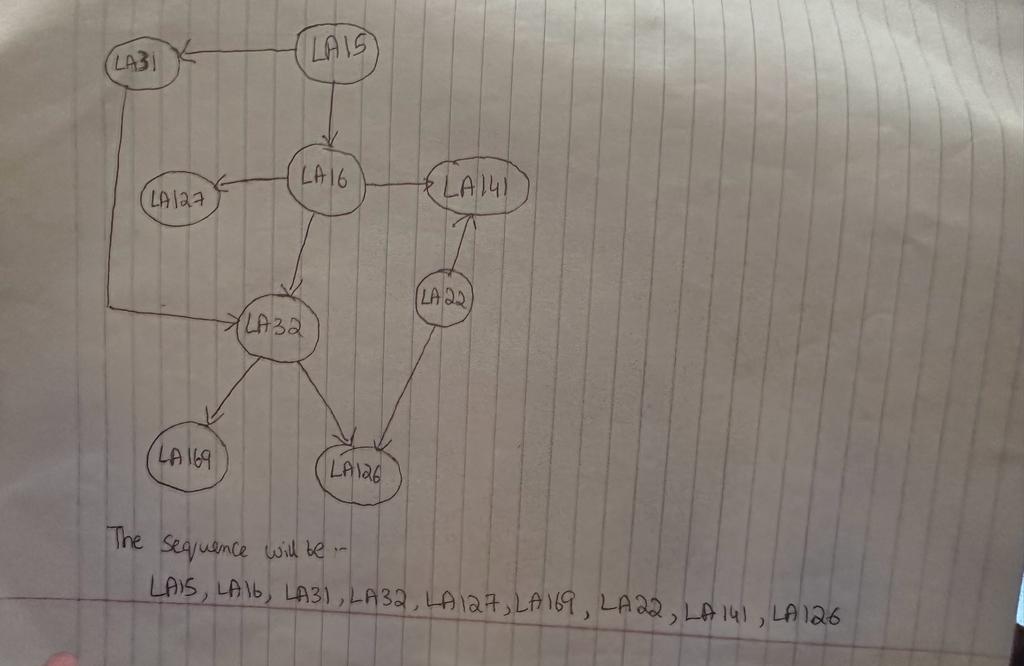 LA31
LA15
LA127
LA16
LA141
LA22
LA32
LA169
LA126
The sequence will be :-
LA15, LA16, LA31, LA32, LA127, LA169, LA22, LA141, LA126